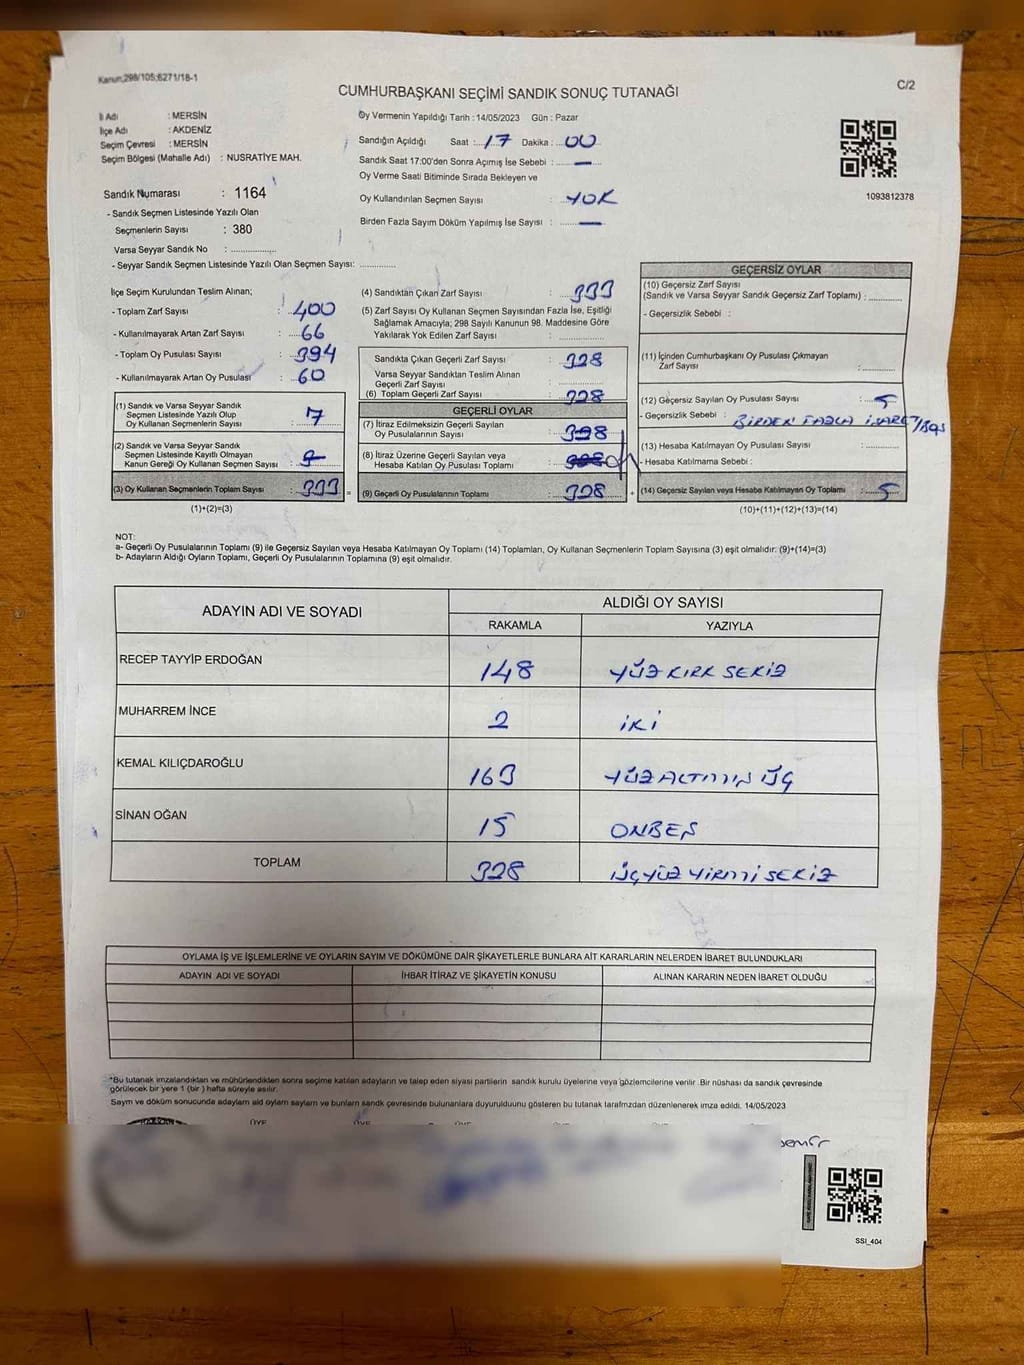 Kanun;298/105;6271/18-1
C/2
CUMHURBAŞKANI SEÇİMİ SANDIK SONUÇ TUTANAĞI
İl Adı : MERSİN
İlçe Adı : AKDENİZ
Seçim Çevresi : MERSİN
Seçim Bölgesi (Mahalle Adı) : NUSRATİYE MAH.
Sandık Numarası : 1164
- Sandık Seçmen Listesinde Yazılı Olan
Seçmenlerin Sayısı : 380
Varsa Seyyar Sandık No :
- Seyyar Sandık Seçmen Listesinde Yazılı Olan Seçmen Sayısı:
Oy Vermenin Yapıldığı Tarih : 14/05/2023 Gün : Pazar
Sandığın Açıldığı Saat : 17 Dakika : 00
Sandık Saat 17:00'den Sonra Açımış İse Sebebi : —
Oy Verme Saati Bitiminde Sırada Bekleyen ve
Oy Kullandırılan Seçmen Sayısı : YOK
Birden Fazla Sayım Döküm Yapılmış İse Sayısı : —
1093812378
İlçe Seçim Kurulundan Teslim Alınan;
- Toplam Zarf Sayısı : 400
- Kullanılmayarak Artan Zarf Sayısı : 66
- Toplam Oy Pusulası Sayısı : 394
- Kullanılmayarak Artan Oy Pusulası : 60
(1) Sandık ve Varsa Seyyar Sandık
Seçmen Listesinde Yazılı Olup
Oy Kullanan Seçmenlerin Sayısı :
(2) Sandık ve Varsa Seyyar Sandık
Seçmen Listesinde Kayıtlı Olmayan
Kanun Gereği Oy Kullanan Seçmen Sayısı :
(3) Oy Kullanan Seçmenlerin Toplam Sayısı : 333
(1)+(2)=(3)
(4) Sandıktan Çıkan Zarf Sayısı : 333
(5) Zarf Sayısı Oy Kullanan Seçmen Sayısından Fazla İse, Eşitliği
Sağlamak Amacıyla; 298 Sayılı Kanunun 98. Maddesine Göre
Yakılarak Yok Edilen Zarf Sayısı :
Sandıkta Çıkan Geçerli Zarf Sayısı : 328
Varsa Seyyar Sandıktan Teslim Alınan
Geçerli Zarf Sayısı :
(6) Toplam Geçerli Zarf Sayısı : 328
GEÇERLİ OYLAR
(7) İtiraz Edilmeksizin Geçerli Sayılan
Oy Pusulalarının Sayısı : 328
(8) İtiraz Üzerine Geçerli Sayılan veya
Hesaba Katılan Oy Pusulası Toplamı :
(9) Geçerli Oy Pusulalarının Toplamı : 328
GEÇERSİZ OYLAR
(10) Geçersiz Zarf Sayısı
(Sandık ve Varsa Seyyar Sandık Geçersiz Zarf Toplamı) :
- Geçersizlik Sebebi :
(11) İçinden Cumhurbaşkanı Oy Pusulası Çıkmayan
Zarf Sayısı :
(12) Geçersiz Sayılan Oy Pusulası Sayısı : 5
- Geçersizlik Sebebi : BİRDEN FAZLA İŞARET/BOŞ
(13) Hesaba Katılmayan Oy Pusulası Sayısı :
- Hesaba Katılmama Sebebi :
(14) Geçersiz Sayılan veya Hesaba Katılmayan Oy Toplamı : 5
(10)+(11)+(12)+(13)=(14)
NOT:
a- Geçerli Oy Pusulalarının Toplamı (9) ile Geçersiz Sayılan veya Hesaba Katılmayan Oy Toplamı (14) Toplamları, Oy Kullanan Seçmenlerin Toplam Sayısına (3) eşit olmalıdır. (9)+(14)=(3)
b- Adayların Aldığı Oyların Toplamı, Geçerli Oy Pusulalarının Toplamına (9) eşit olmalıdır.
ADAYIN ADI VE SOYADI ALDIĞI OY SAYISI
RAKAMLA YAZIYLA
RECEP TAYYİP ERDOĞAN 148 YÜZ KIRK SEKİZ
MUHARREM İNCE 2 İKİ
KEMAL KILIÇDAROĞLU 163 YÜZ ALTMIŞ ÜÇ
SİNAN OĞAN 15 ONBEŞ
TOPLAM 328 ÜÇYÜZ YİRMİ SEKİZ
OYLAMA İŞ VE İŞLEMLERİNE VE OYLARIN SAYIM VE DÖKÜMÜNE DAİR ŞİKAYETLERLE BUNLARA AİT KARARLARIN NELERDEN İBARET BULUNDUKLARI
ADAYIN ADI VE SOYADI İHBAR İTİRAZ VE ŞİKAYETİN KONUSU ALINAN KARARIN NEDEN İBARET OLDUĞU
*Bu tutanak imzalandıktan ve mühürlendikten sonra seçime katılan adayların ve talep eden siyasi partilerin sandık kurulu üyelerine veya gözlemcilerine verilir. Bir nüshası da sandık çevresinde
görülecek bir yere 1 (bir ) hafta süreyle asılır.
Sayım ve döküm sonucunda adayların aldığı oyların sayılarını ve bunların sandık çevresinde bulunanlara duyurulduğunu gösteren bu tutanak tarafımızdan düzenlenerek imza edildi. 14/05/2023
SSI_404